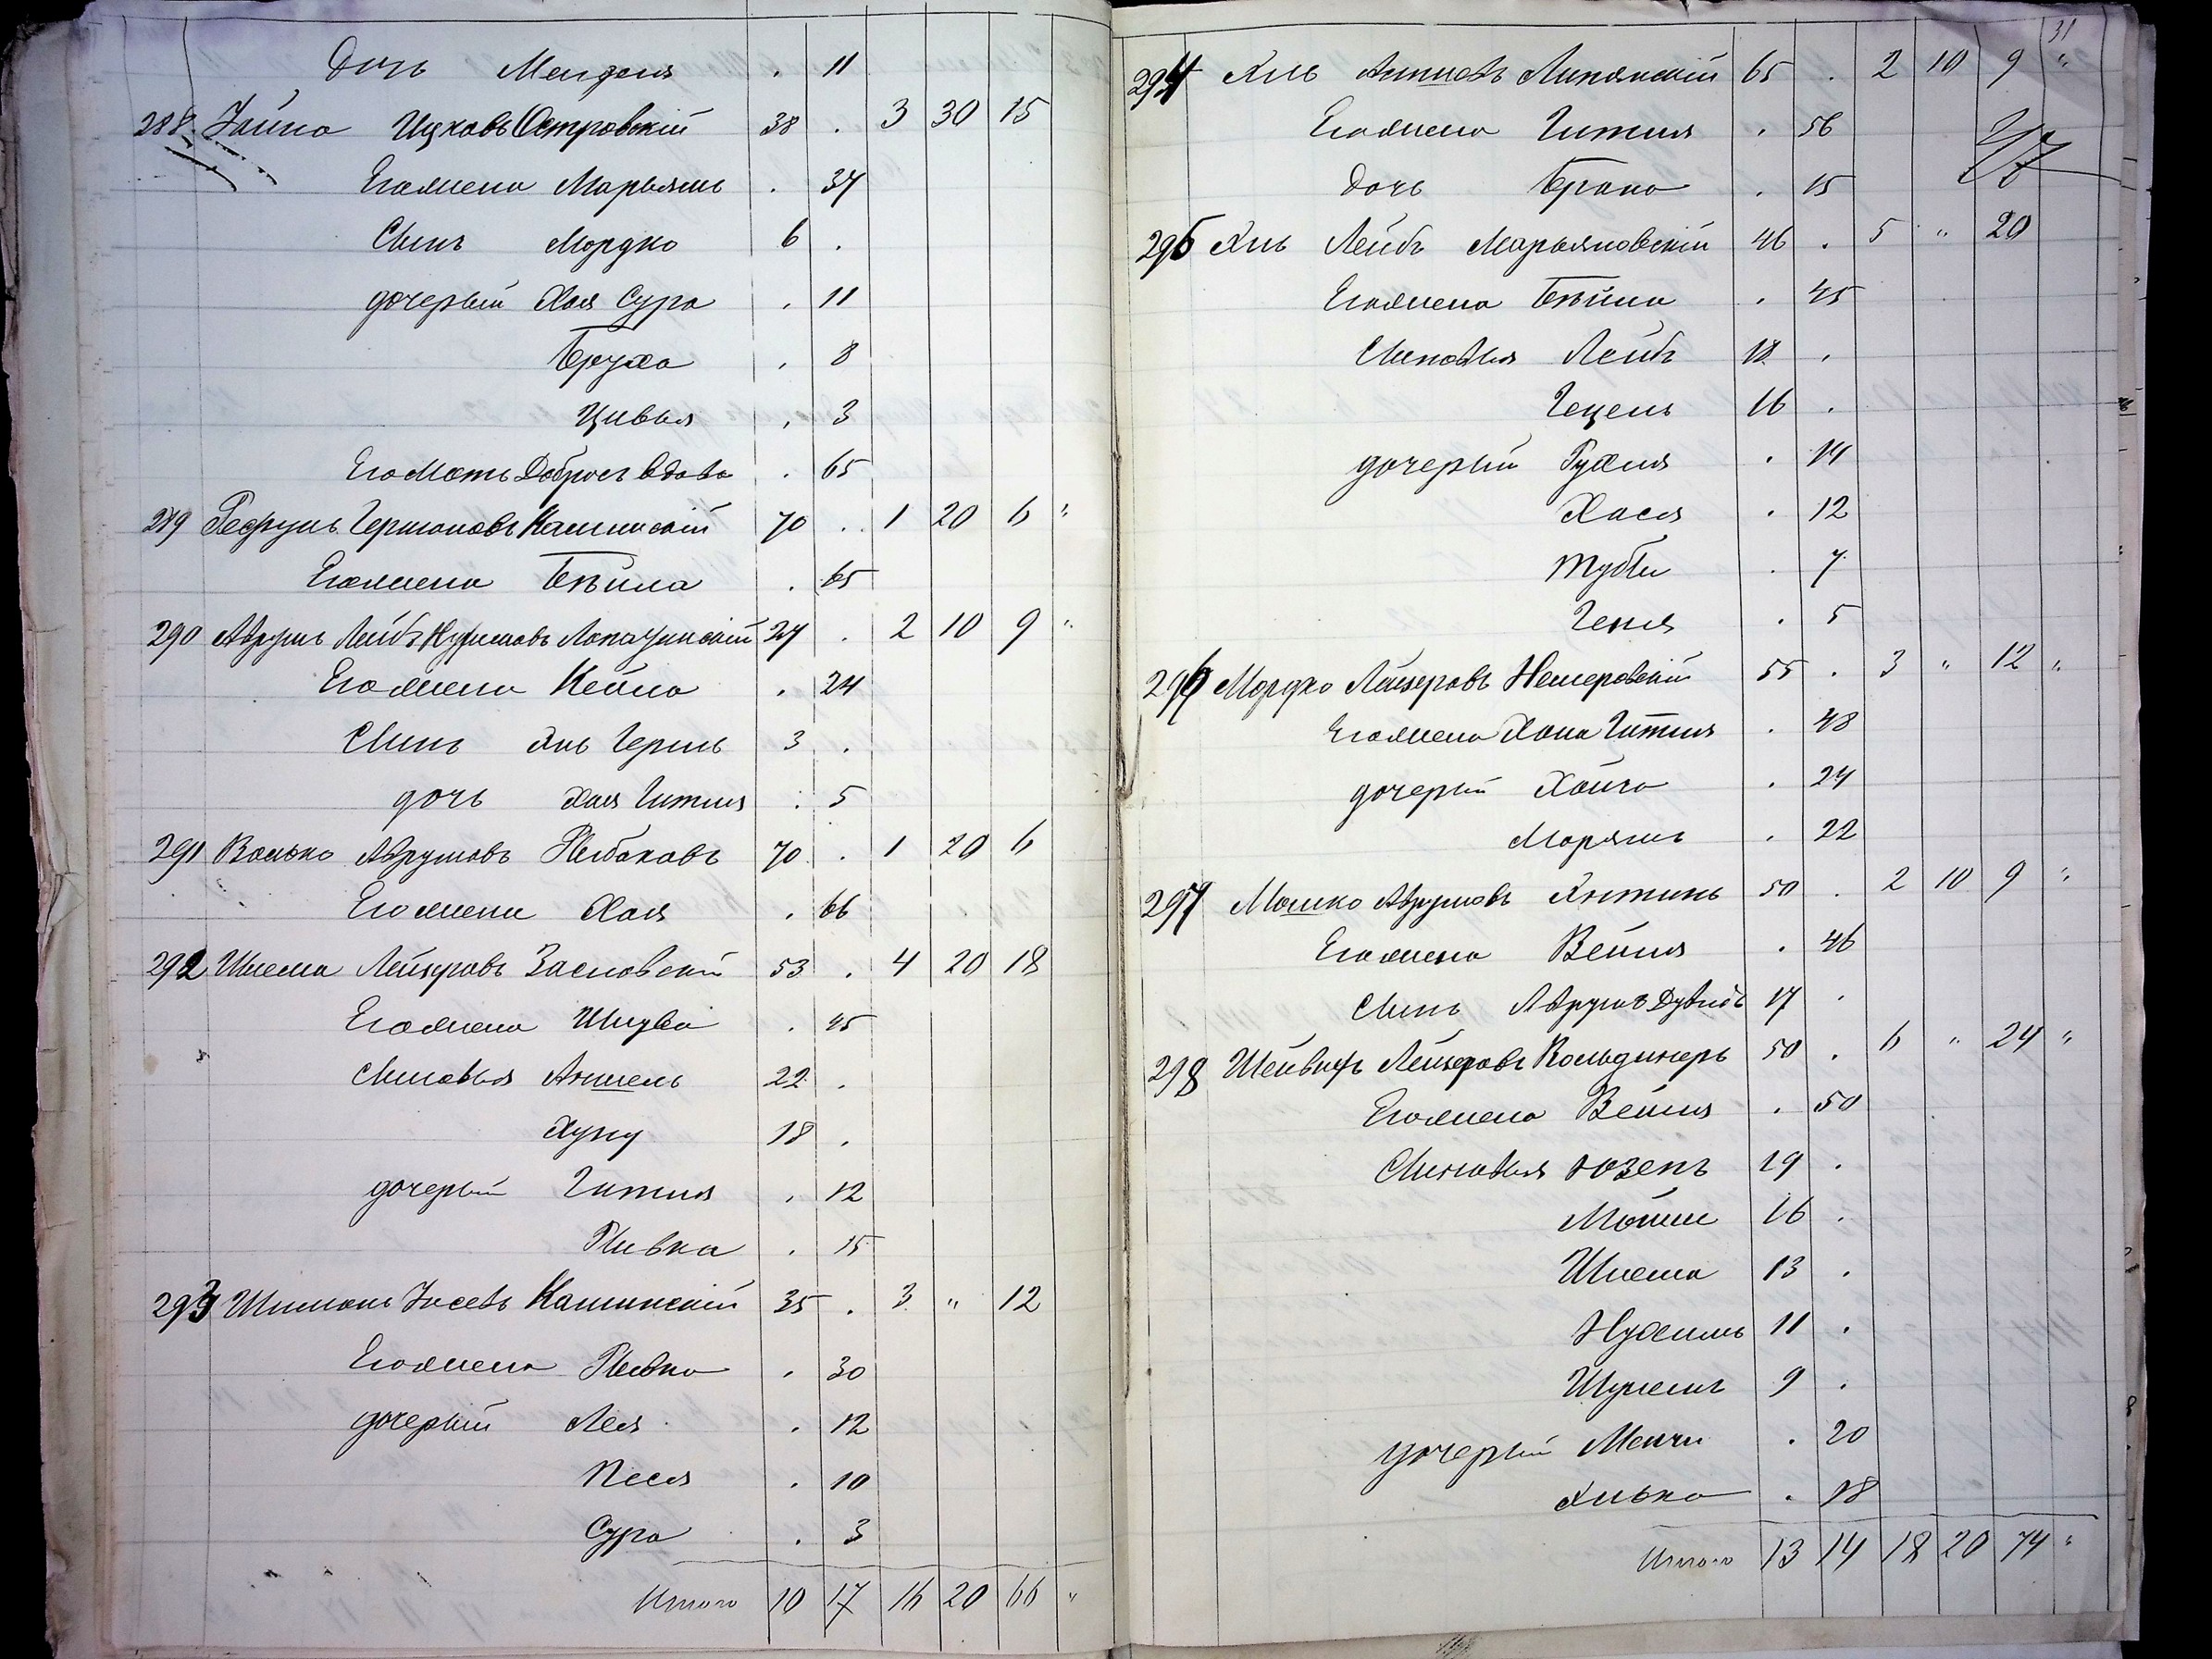 Дочь Мендля . 11
288 Хайма Ицковъ Островскій 38 . 3 30 15
Его жена Марьямъ . 34
Сынъ Мордко 6 .
дочерьи Хая Сура . 11
Бруха . 8
Цивья . 3
Его Мать Добрось вдова . 65
289 Гершоновъ Каминскій 70 . 1 20 6 "
Его жена Бейла . 65
290 Аврумъ Лейбъ 24 . 2 10 9 "
Его жена Кейла . 24
Сынъ Хиль Гершъ 3 .
дочь Хая Гитля . 5
291 Волько Аврумовъ Рыбаковъ 70 . 1 20 6
Его жена Хая . 66
292 Шлема Лейзеровъ Заславскій 53 . 4 20 18
Его жена . 45
Сыновья Аншель 22 .
18 .
дочерьи Гитля . 12
Ривка . 15
293 Шимонъ Іосевъ Каминскій 35 . 3 " 12
Его жена Ривка . 30
дочерьи Лея . 12
Песя . 10
Сура . 3
Итого 10 17 16 20 66 "
31
294 Хиль Липянскій 65 . 2 10 9 "
Его жена Гитля . 56
Дочь Брана . 15
295 Хиль Лейбъ Марьяновскій 46 . 5 " 20
Его жена Бейла . 45
Сыновья Лейбъ 18 .
Гецель 16 .
дочерьи Рухля . 14
Хася . 12
Тубы . 7
Геня . 5
296 Мордко Лейзеровъ Немеровскій 55 . 3 " 12 "
Его жена Хана Гитля . 48
дочерьи Хайка . 24
Марямъ . 22
297 Мошко Аврумовъ 50 . 2 10 9 "
Его жена Бейля . 46
Сынъ Аврумъ Дувидъ 17 .
298 Лейзеровъ Вольдингеръ 50 . 6 " 24 "
Его жена Бейля . 50
Сыновья Юзепъ 19 .
Мошко 16 .
Шлема 13 .
Нухимъ 11 .
Шулемъ 9 .
дочерьи Менчи . 20
. 18
Итого 13 14 18 20 74 "